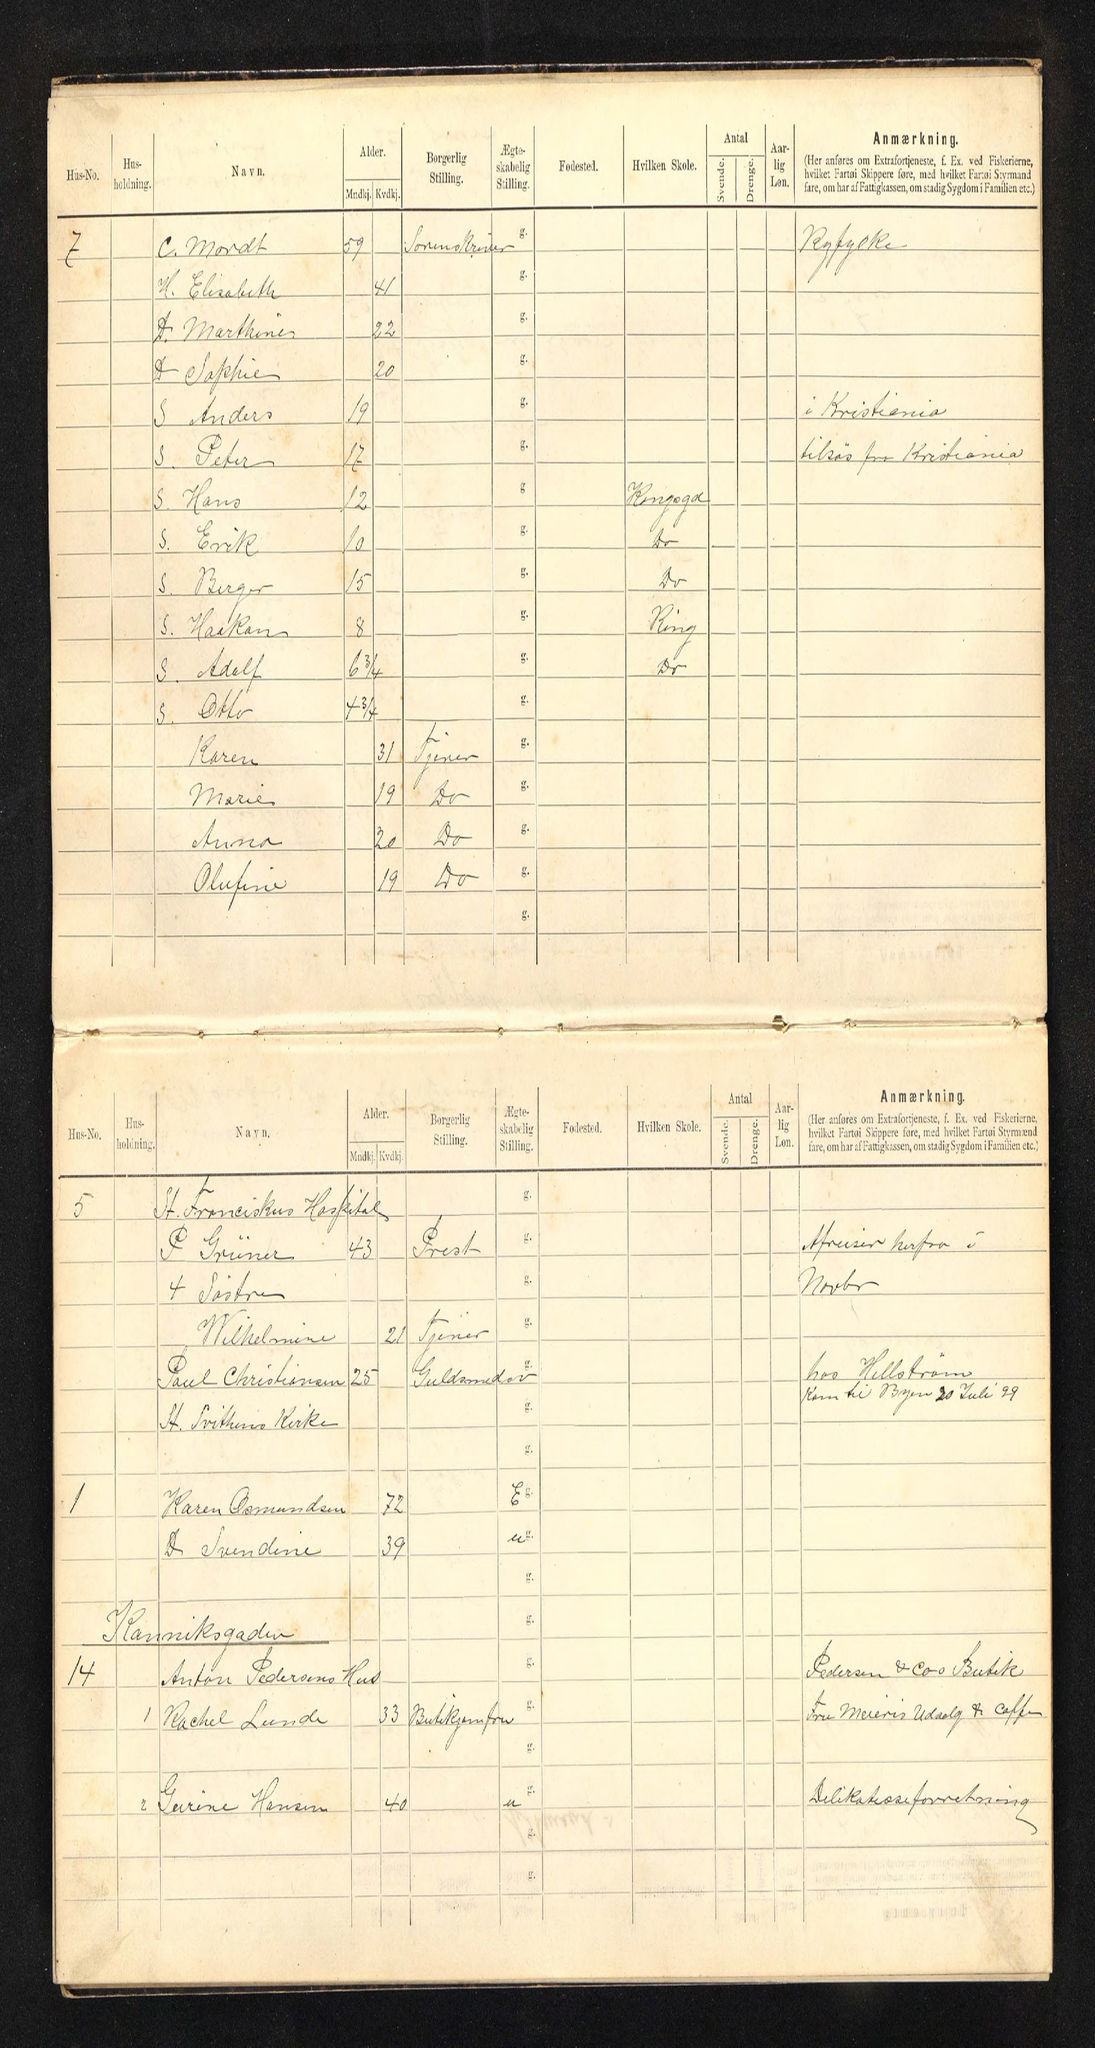 Hus-No. Hus-holdning. Navn. Alder. Mndkj. Kvdkj. Borgerlig Stilling. Ægte-skabelig Stilling. Fødested. Hvilken Skole. Antal Svende. Drenge. Aar-lig Løn. Anmærkning.
(Her anføres om Extrafortjeneste, f. Ex. ved Fiskerierne,
hvilket Fartøi Skippere føre, med hvilket Fartøi Styrmænd
fare, om har af Fattigkassen, om stadig Sygdom i Familien etc.)
7 C. Mordt 59 Sorenskriver g. Ryfylke
H. Elisabeth 41 g.
D. Marthine 22 g.
D Sophie 20 g.
S Anders 19 g. i Kristiania
S. Peter 17 g. tilsøs fra Kristiania
S. Hans 12 g Kongsgd
S. Erik 10 g. Do
S. Berger 15 g. Do
S. Haakon 8 g. Ring
S. Adolf 6 3/4 g. Do
S. Otto 4 3/4 g.
Karen 31 Tjener g.
Marie 19 Do g.
Anna 20 Do g.
Olufine 19 Do g.
g.
Hus-No. Hus-holdning. Navn. Alder. Mndkj. Kvdkj. Borgerlig Stilling. Ægte-skabelig Stilling. Fødested. Hvilken Skole. Antal Svende. Drenge. Aar-lig Løn. Anmærkning.
(Her anføres om Extrafortjeneste, f. Ex. ved Fiskerierne,
hvilket Fartøi Skippere føre, med hvilket Fartøi Styrmænd
fare, om har af Fattigkassen, om stadig Sygdom i Familien etc.)
5 St. Franciskus Hospital g.
P Grüner 43 Prest g. Afreiser herfra i
4 Søstre g. Novbr
Wilhelmine 21 Tjener g.
Paul Christiansen 25 Guldsmedsv g. hos Hellstrøm
St. Svithuns Kirke g. Kom til Byen 20 Juli 99
g.
1 Karen Osmundsen 72 E g.
D Svendine 39 u g.
g.
Kanniksgaden g.
14 Anton Pedersens Hus g. Pedersen & Cos Butik
1 Rachel Lunde 33 Butikjomfru g. Fru Meieris Udsalg & Caffe
g.
2 Gurine Hansen 40 u g. Delikatesseforretning
g.
g.